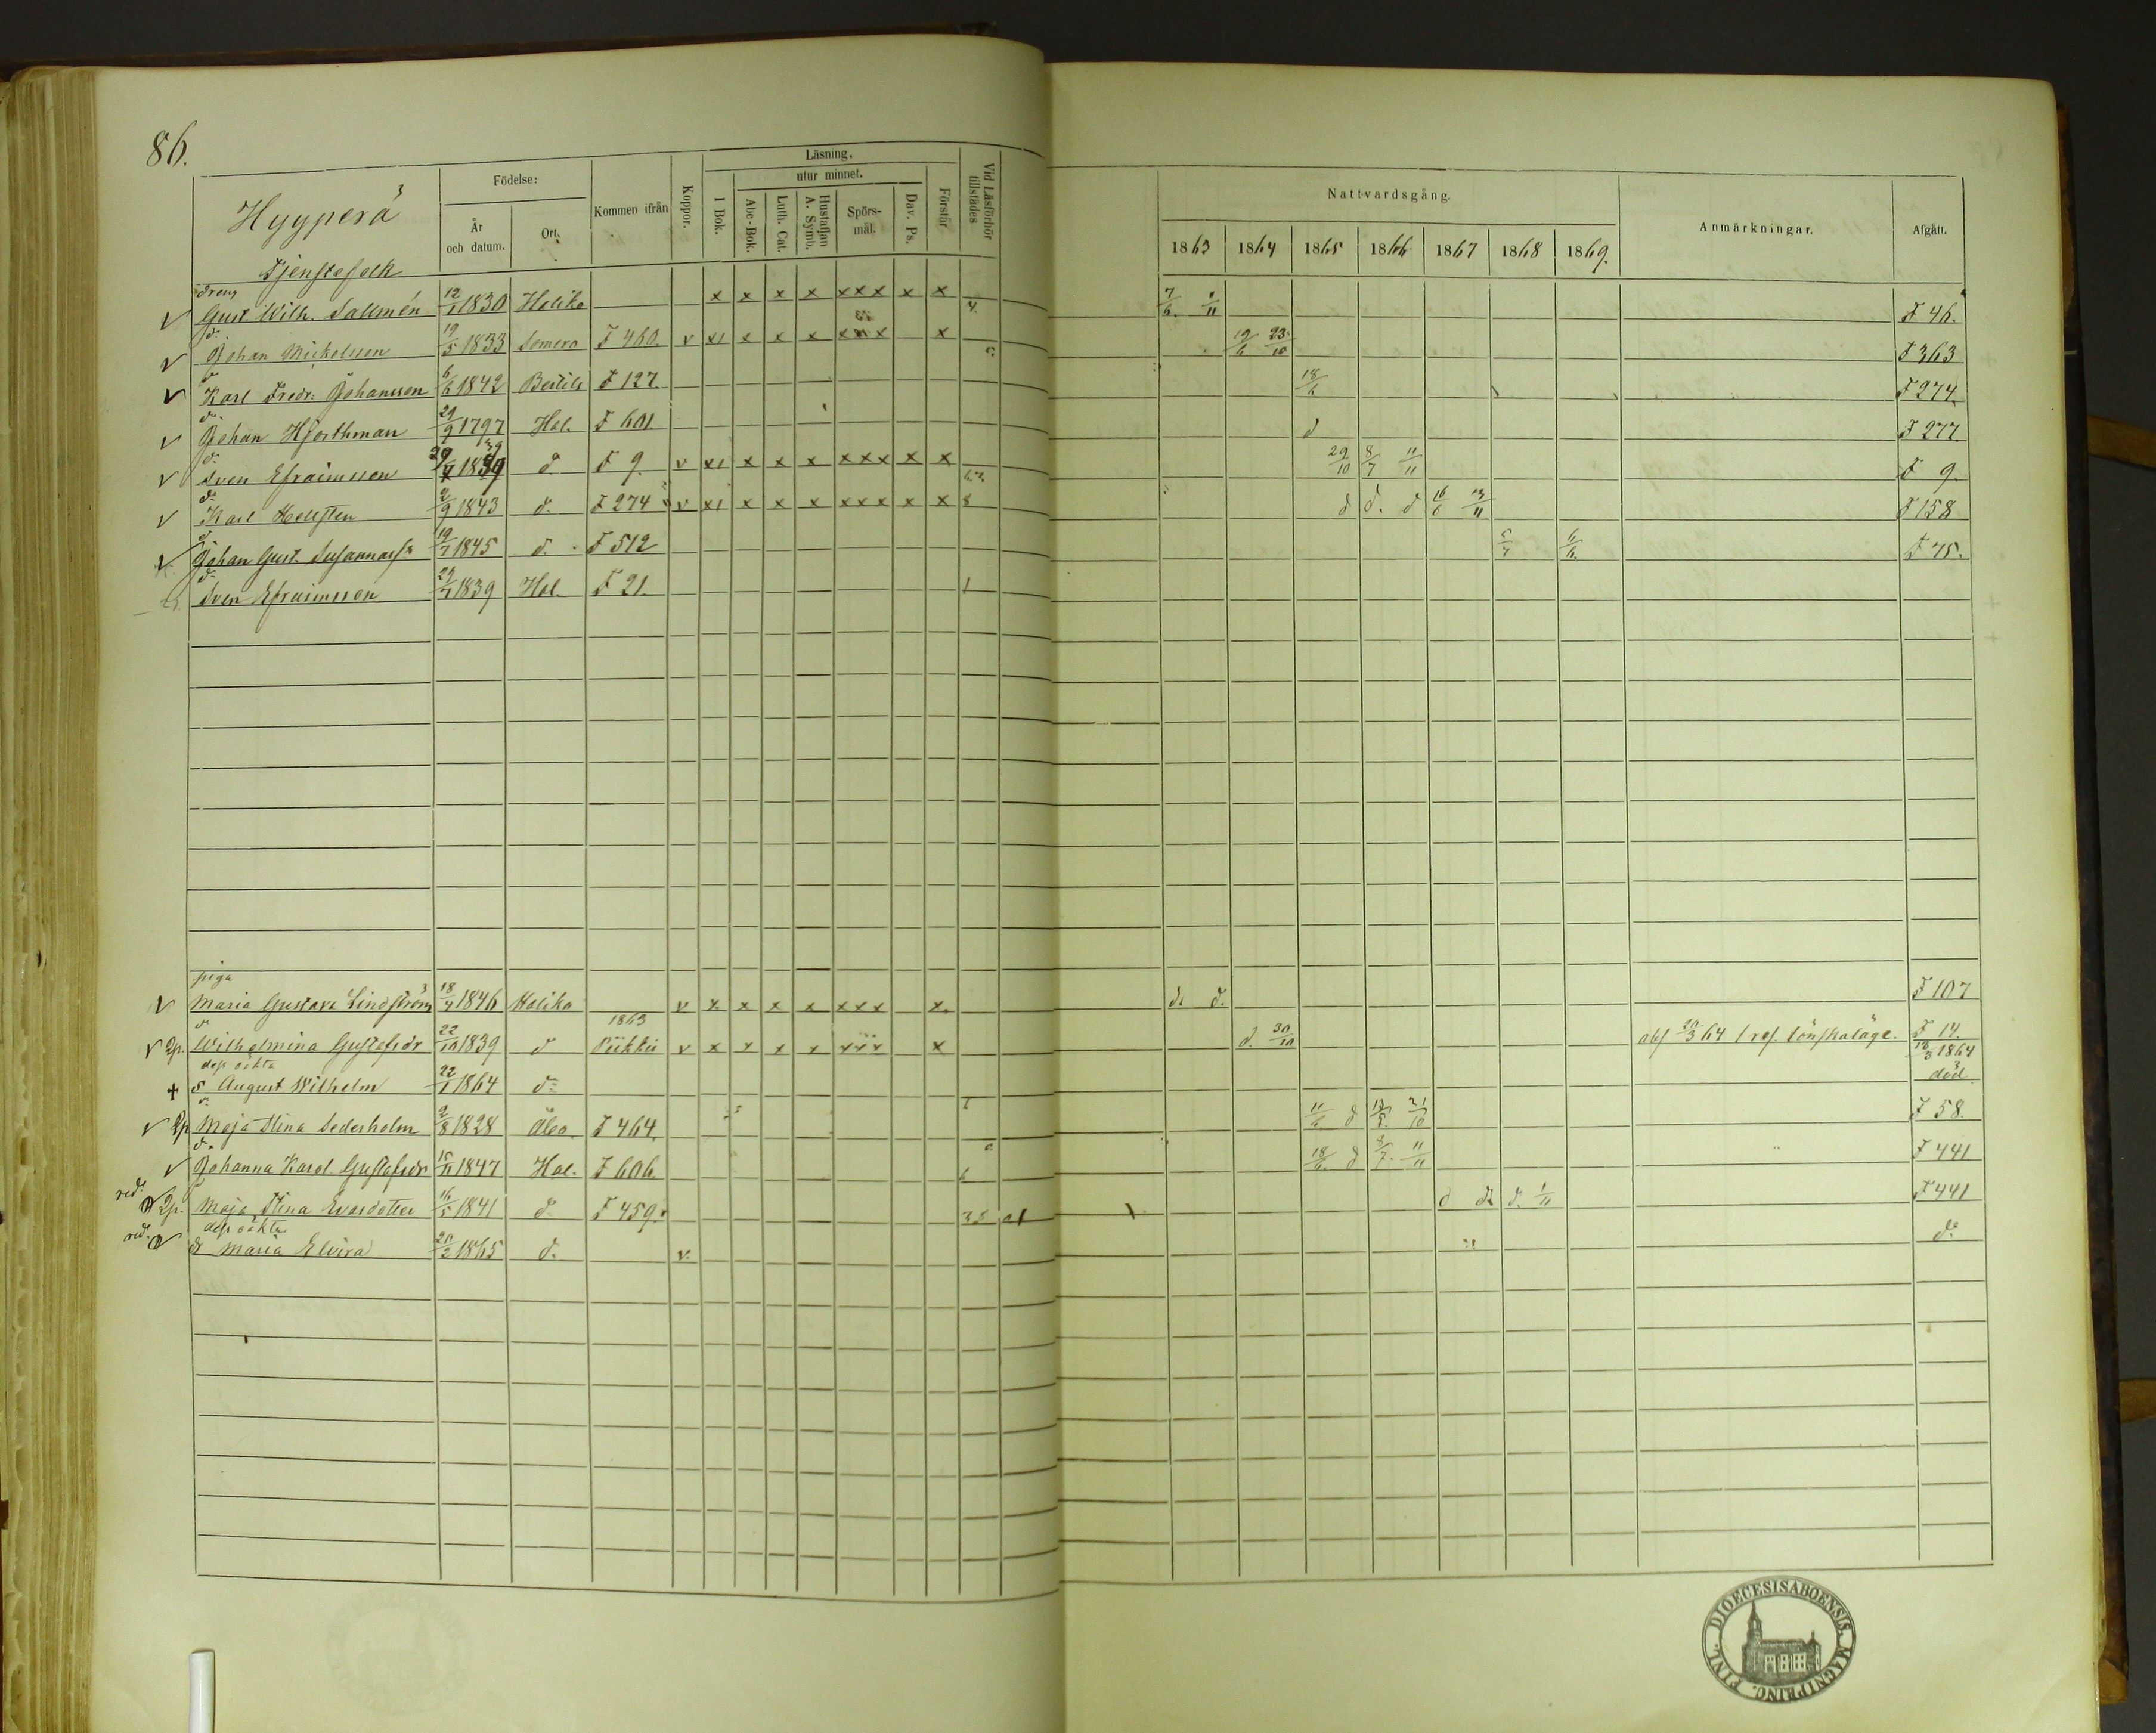 86.
Hyyperä
Tjenstefolk
Födelse:
År och datum.
Ort.
Kommen ifrån
Koppor.
Läsning.
I Bok.
utur minnet.
Abc-Bok.
Luth. Cat.
Hustaflan A. Symb.
Spörs-mål.
Dav. Ps.
Förstår
Vid Läsförhör tillstädes
Nattvardsgång.
1863 1864 1865 1866 1867 1868 1869.
Anmärkningar.
Afgått.
dreng
v Gust Wilh. Sallmén 12/1 1830 Haliko x x x x xxx x x 4. 7/6. 11 F 46.
d:
v Johan Mickelsson 19/5 1833 Somero F 460. v x1 x x x xxx x 19/6 23/10 F 363
v Karl Fredr. Johansson 6/6 1842 Bertils F 127 18/6 F 274
d:
v Johan Hjorthman 29/9 1797 Hal. F 601 d F 277
d:
v Sven Efraimsson 29/7 1839 d. F 9. v x1 x x x xxx x x 29/10 8/7 11/11 F 9.
d:
v Karl Hellsten 2/9 1843 d. F 274 v x1 x x x xxx x x 8 d d. d 16/6 13/11 F 158
d:
v Johan Gust. 19/7 1845 d. F 512 5/7 6/6. F 75.
d:
Sven Efraimsson 29/7 1839 Hal. F 21. 1
piga
v Maria Gustava Lindström 18/7 1846 Haliko v x x x x xxx x. d. d. F 107
d
v 2p. Wilhelmina Gustafsdr 22/10 1839 d 1863 Piikkii v x x x x xxx x d. 30/10 abs 20/3 64 / ref. lönskaläge. F 14.
dess oäkta
+ s August Wilhelm 22/1 1864 d: 12/3 1864 död
d:
v 2p Maja Stina Sederholm 2/8 1828 Åbo. F 464. 11/6. d 13/5. 21/10 F 58.
d:
v Johanna Karol Gustafsdr 15/11 1847 Hal. F 606. 18/6. d 8/7. 11/11 F 441
red. 2p. Maja Stina Evasdotter 16/5 1841 d F 459. 35 d d. d. 1/11 F 441
dess oäkta
red. dr Maria Elvira 20/2 1865 d. v. d:o
FINL. DIOECESIS ABOENSIS. MAGNI PRINC.